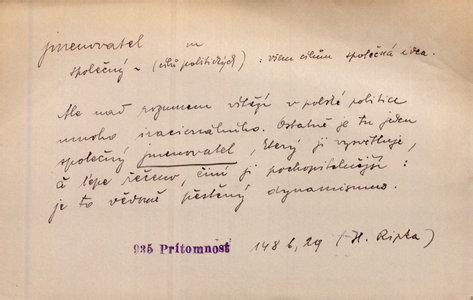 jmenovatel m
společný ~ (cílů politických) : všem cílům společná idea.
Ale nad rozumem vítězí v polské politice
mnoho iracionálního. Ostatně je tu jeden
společný jmenovatel, který ji vysvětluje,
či lépe řečeno, činí ji pochopitelnější :
je to vědomě pěstěný dynamismus.
935 Prítomnosť 148 b, 29 (H. Ripka)